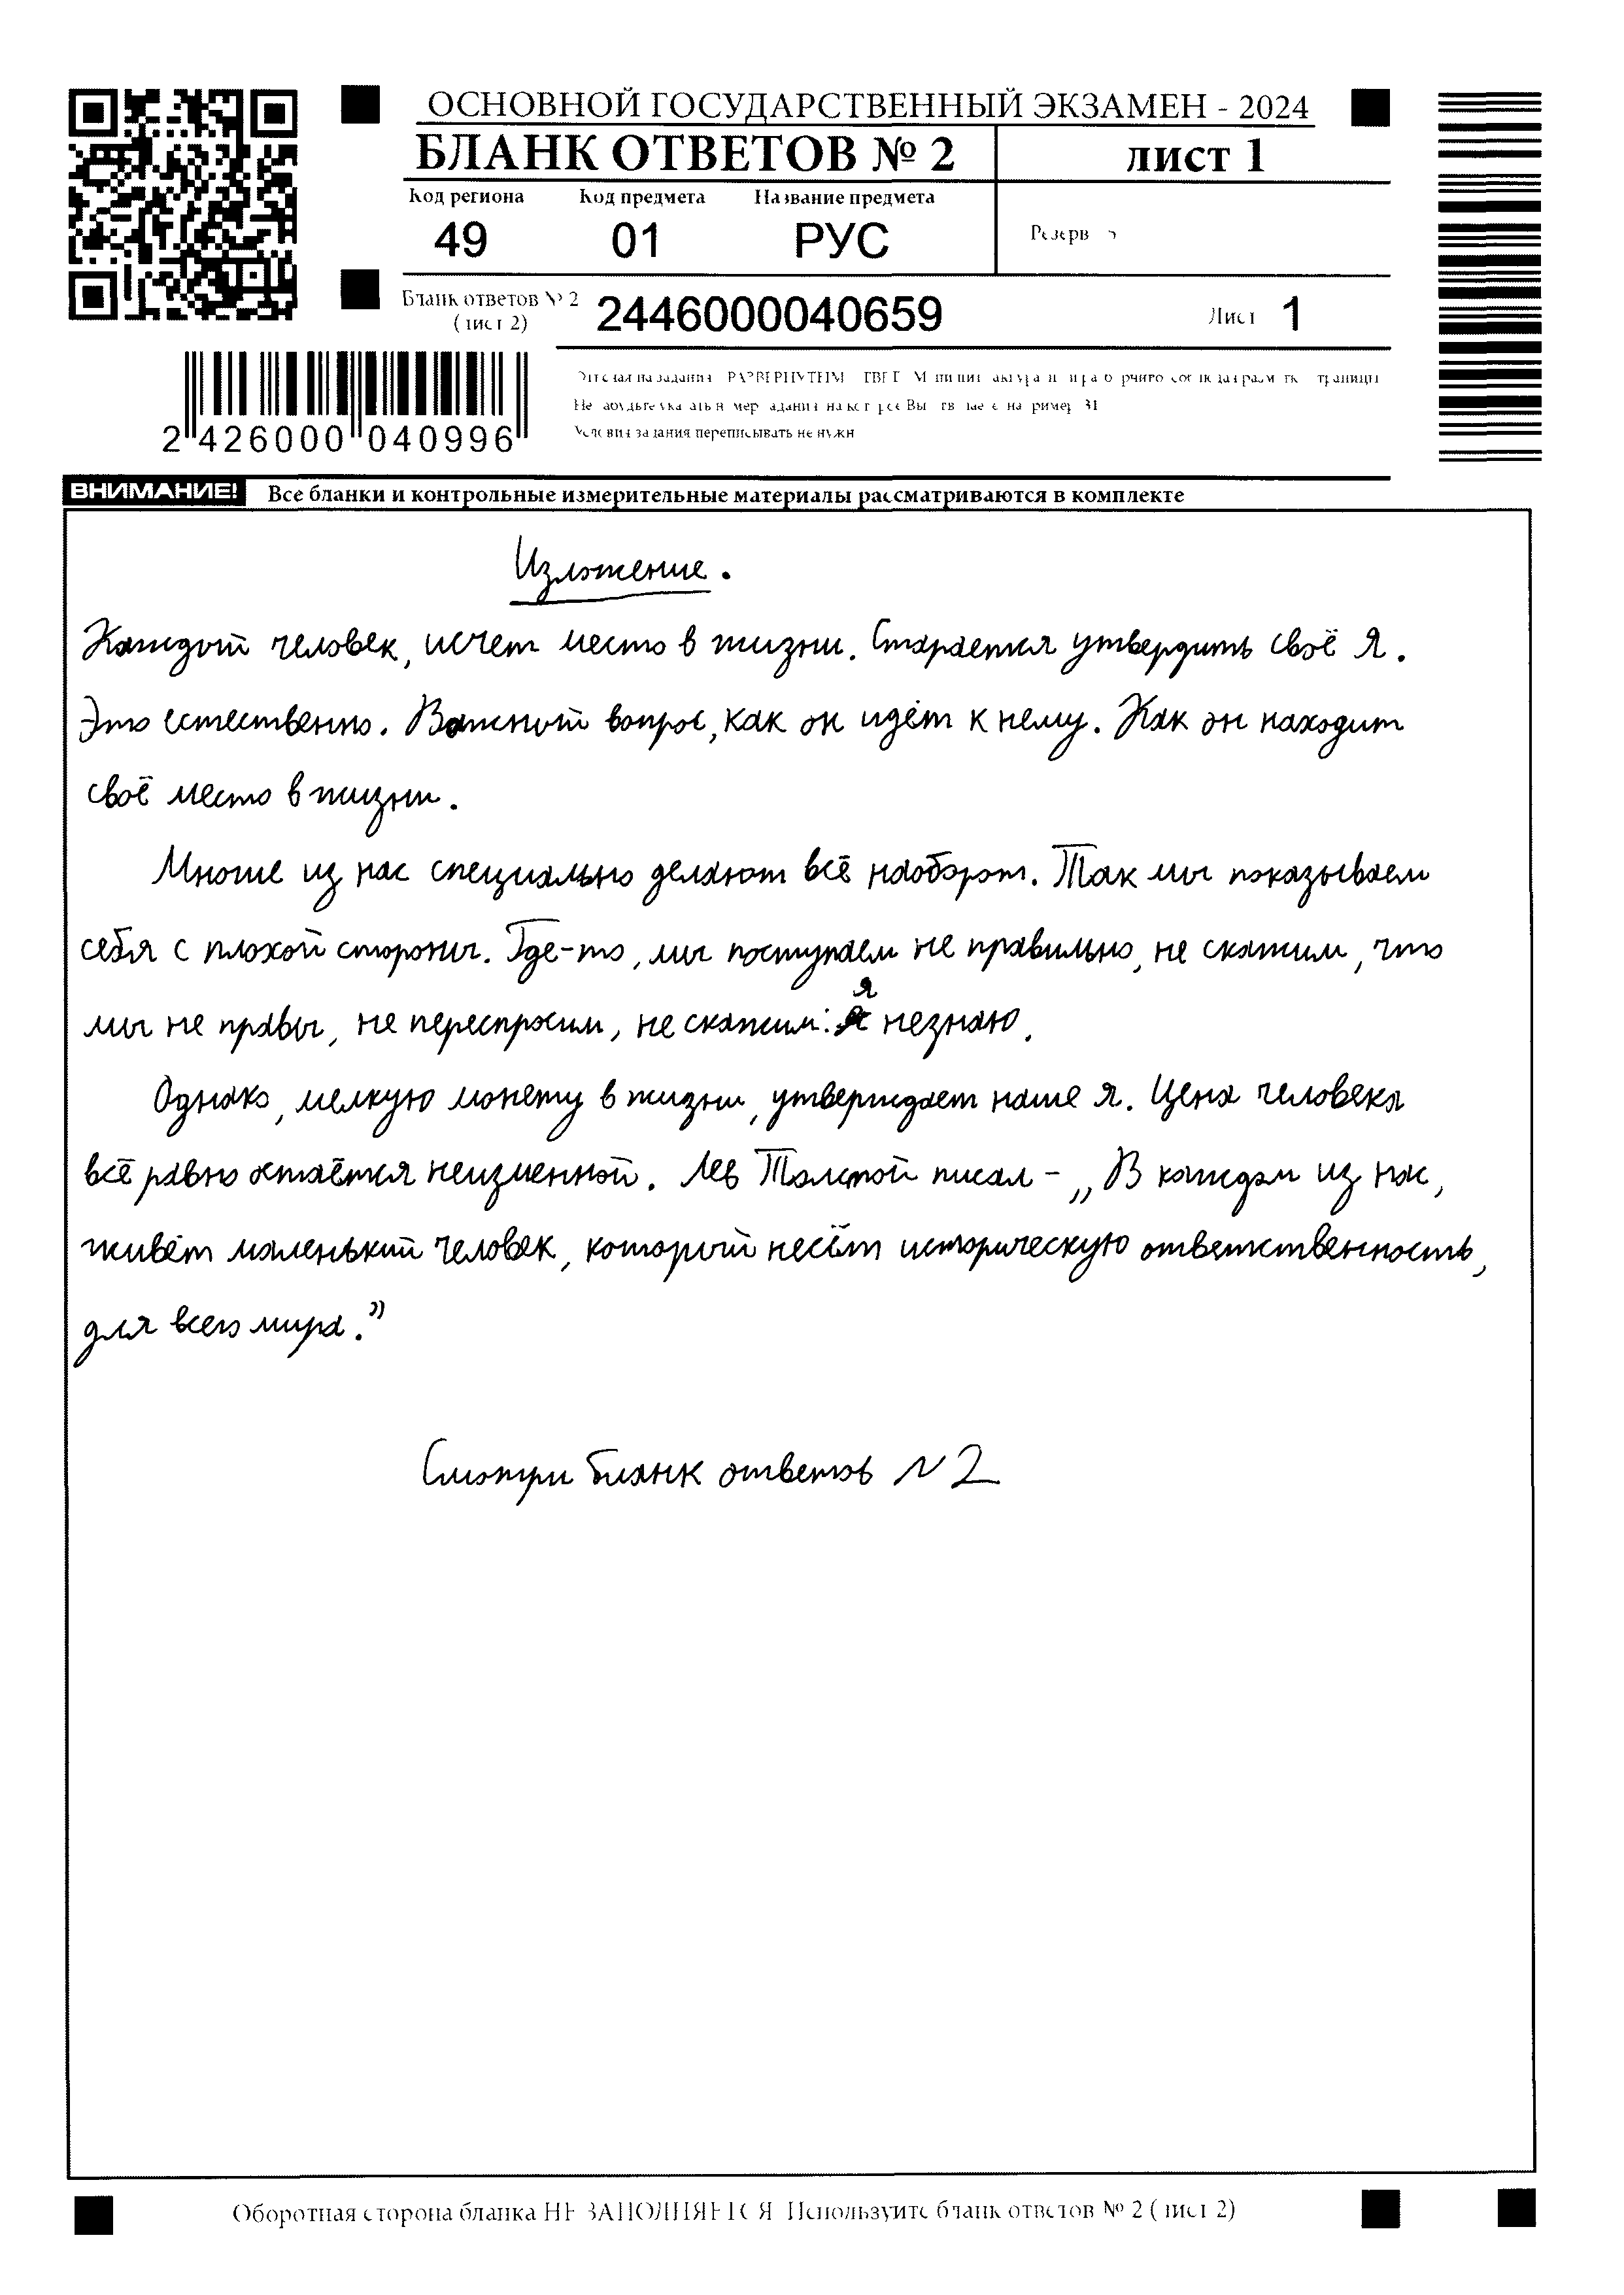 ОСНОВНОЙ ГОСУДАРСТВЕННЫЙ ЭКЗАМЕН - 2024
БЛАНК ОТВЕТОВ № 2
лист 1
Код региона Код предмета Название предмета
49 01 РУС
Резерв
Бланк ответов № 2
(лист 2)
2446000040659
Лист 1
2 426000 040996
Условия задания переписывать не нужн
ВНИМАНИЕ! Все бланки и контрольные измерительные материалы рассматриваются в комплекте
Изложение.
Каждый человек, исчет место в жизни. Старается утвердить своё Я.
Это естественно. Важный вопрос, как он идёт к нему. Как он находит
своё место в жизни.
Многие из нас специально делают всё наоборот. Так мы показываем
себя с плохой стороны. Где-то, мы поступаем не правильно, не скажим, что
мы не правы, не переспросим, не скажим: я незнаю.
Однако, мелкую монету в жизни, утверждает наше я. Цена человека
всё равно остаётся неизменной. Лев Толстой писал - „В каждом из нас,
живёт маленький человек, который несёт историческую ответственность,
для всего мира.”
Смотри бланк ответов N 2
Оборотная сторона бланка НЕ ЗАПОЛНЯЕТСЯ Используйте бланк ответов № 2 (лист 2)